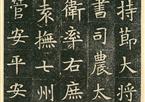 持節大将
書司農太
衛率右庶
撫七州
管安平安